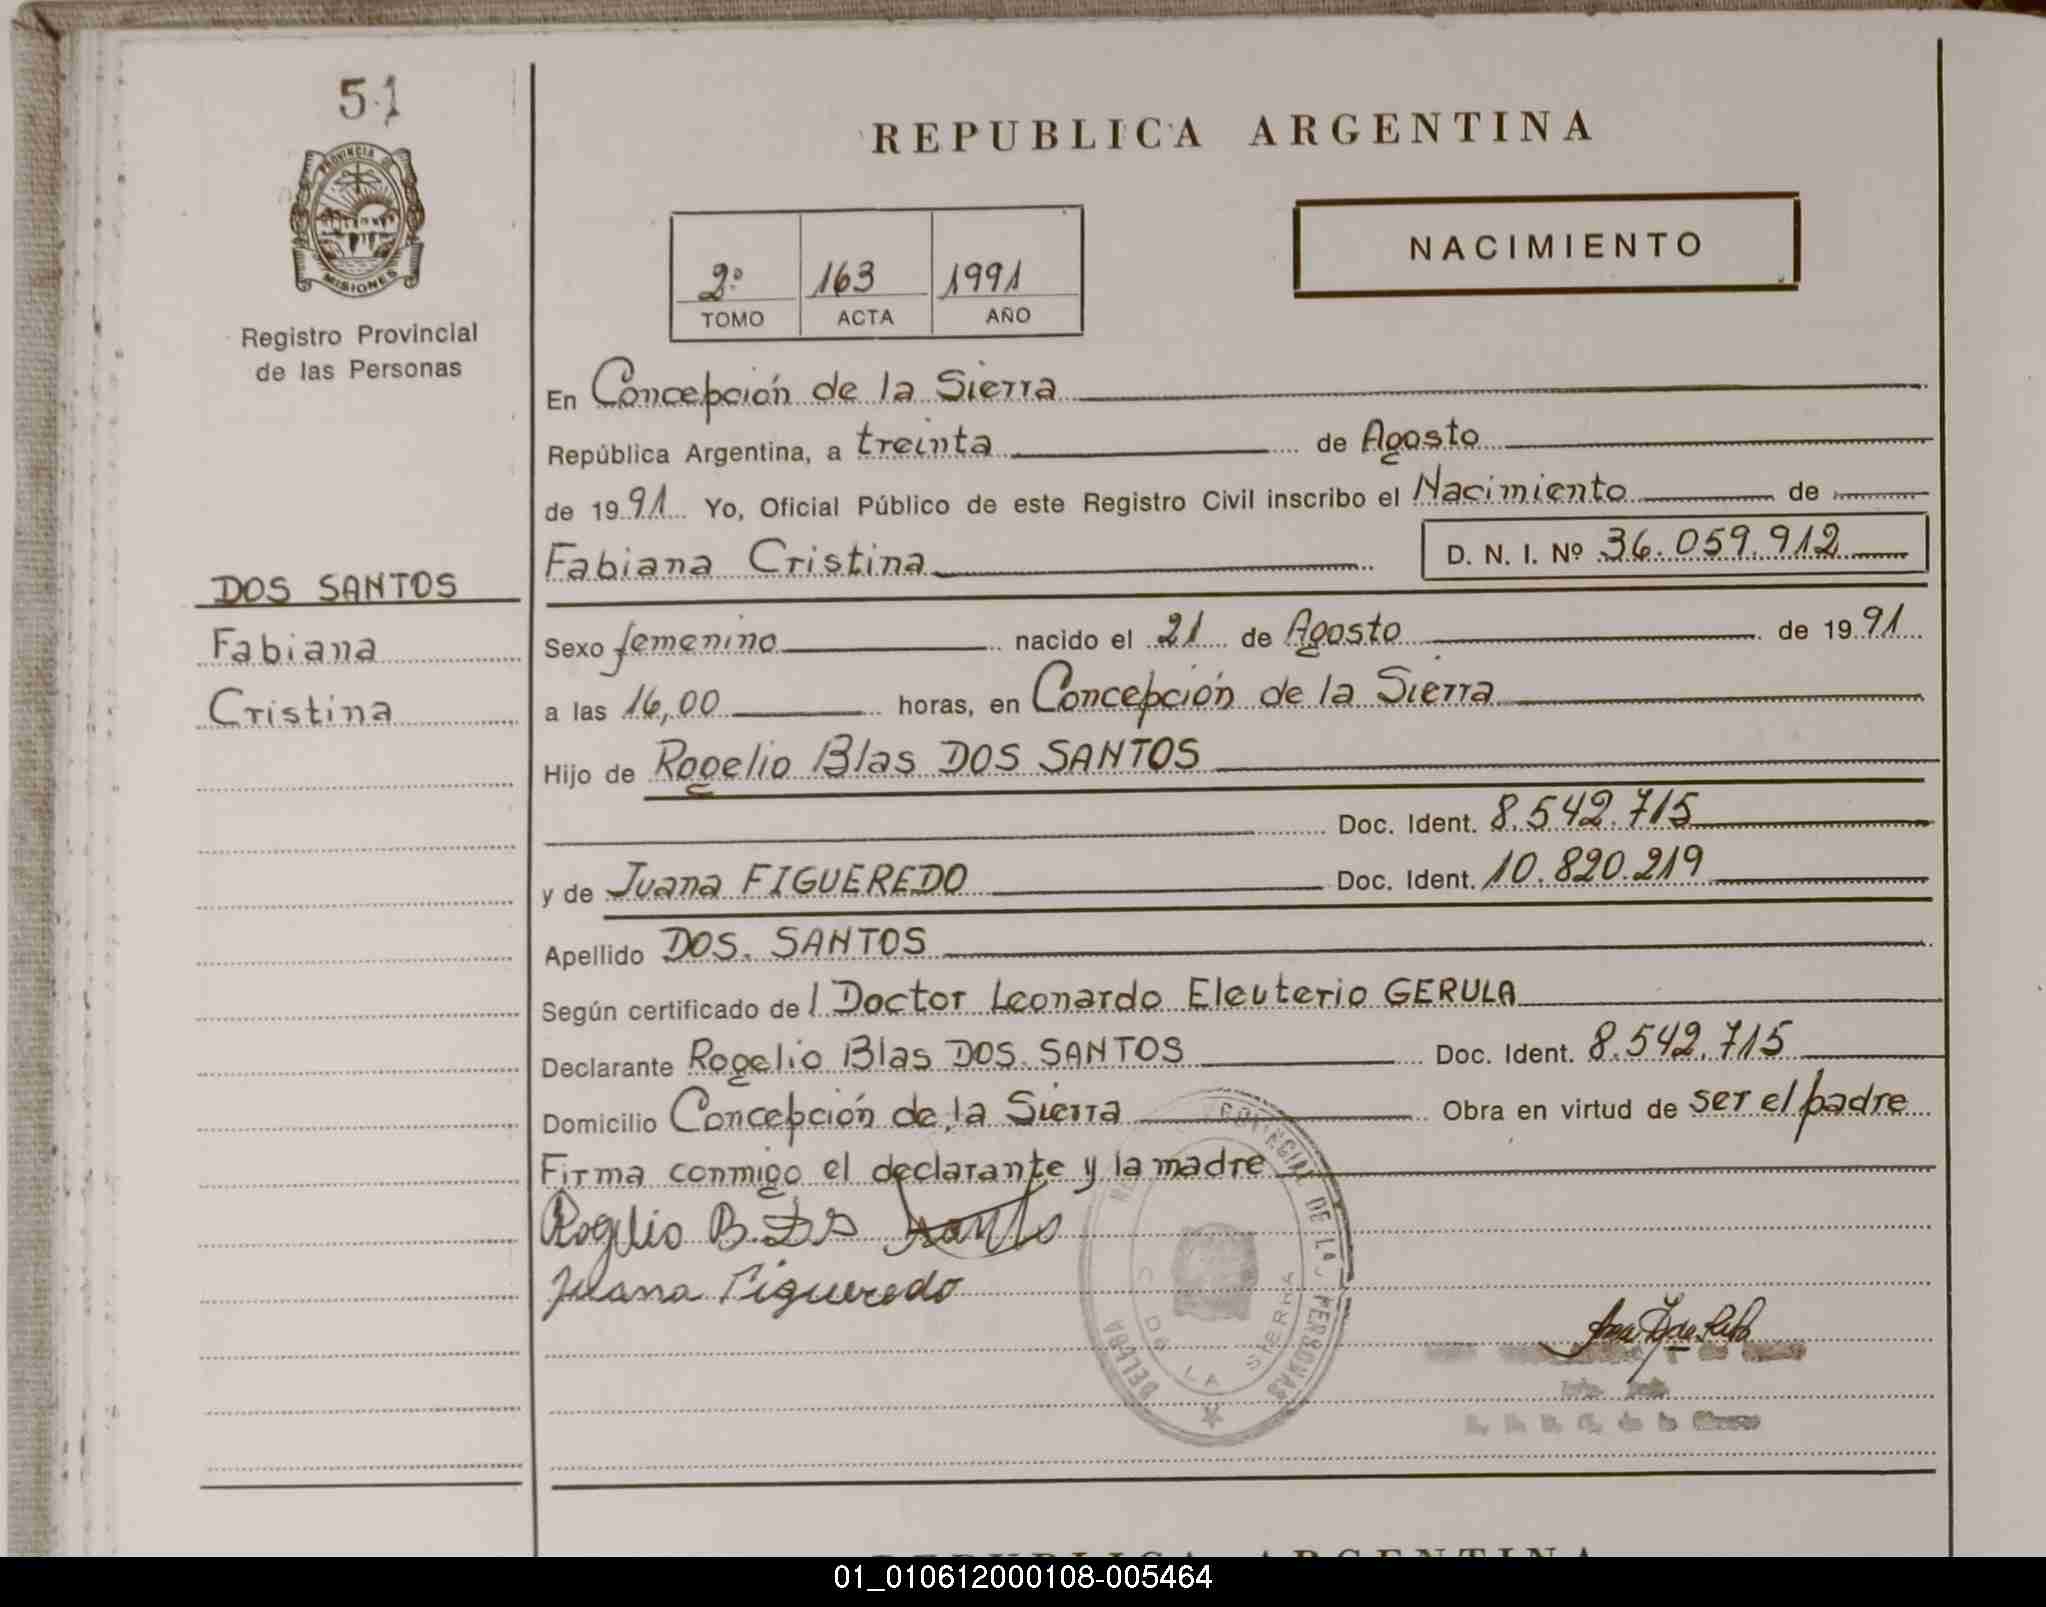 51
PROVINCIA DE
MISIONES
Registro Provincial
de las Personas
DOS SANTOS
Fabiana
Cristina
REPUBLICA ARGENTINA
NACIMIENTO
2º 163 1991
TOMO ACTA AÑO
En Concepción de la Sierra
República Argentina, a treinta de Agosto
de 1991 Yo, Oficial Público de este Registro Civil inscribo el Nacimiento de
Fabiana Cristina D. N. I. Nº 36.059.912
Sexo femenino nacido el 21 de Agosto de 1991
a las 16,00 horas, en Concepción de la Sierra
Hijo de Rogelio Blas DOS SANTOS
Doc. Ident. 8.542.715
y de Juana FIGUEREDO Doc. Ident. 10.820.219
Apellido DOS. SANTOS
Según certificado de l Doctor Leonardo Eleuterio GERULA
Declarante Rogelio Blas DOS SANTOS Doc. Ident. 8.542.715
Domicilio Concepción de la Sierra Obra en virtud de ser el padre
Firma conmigo el declarante y la madre
Rogelio B. Dos Santos
Juana Figueredo
PROVINCIAL DE LAS PERSONAS
C. DE LA SIERRA
REPUBLICA ARGENTINA
01_010612000108-005464